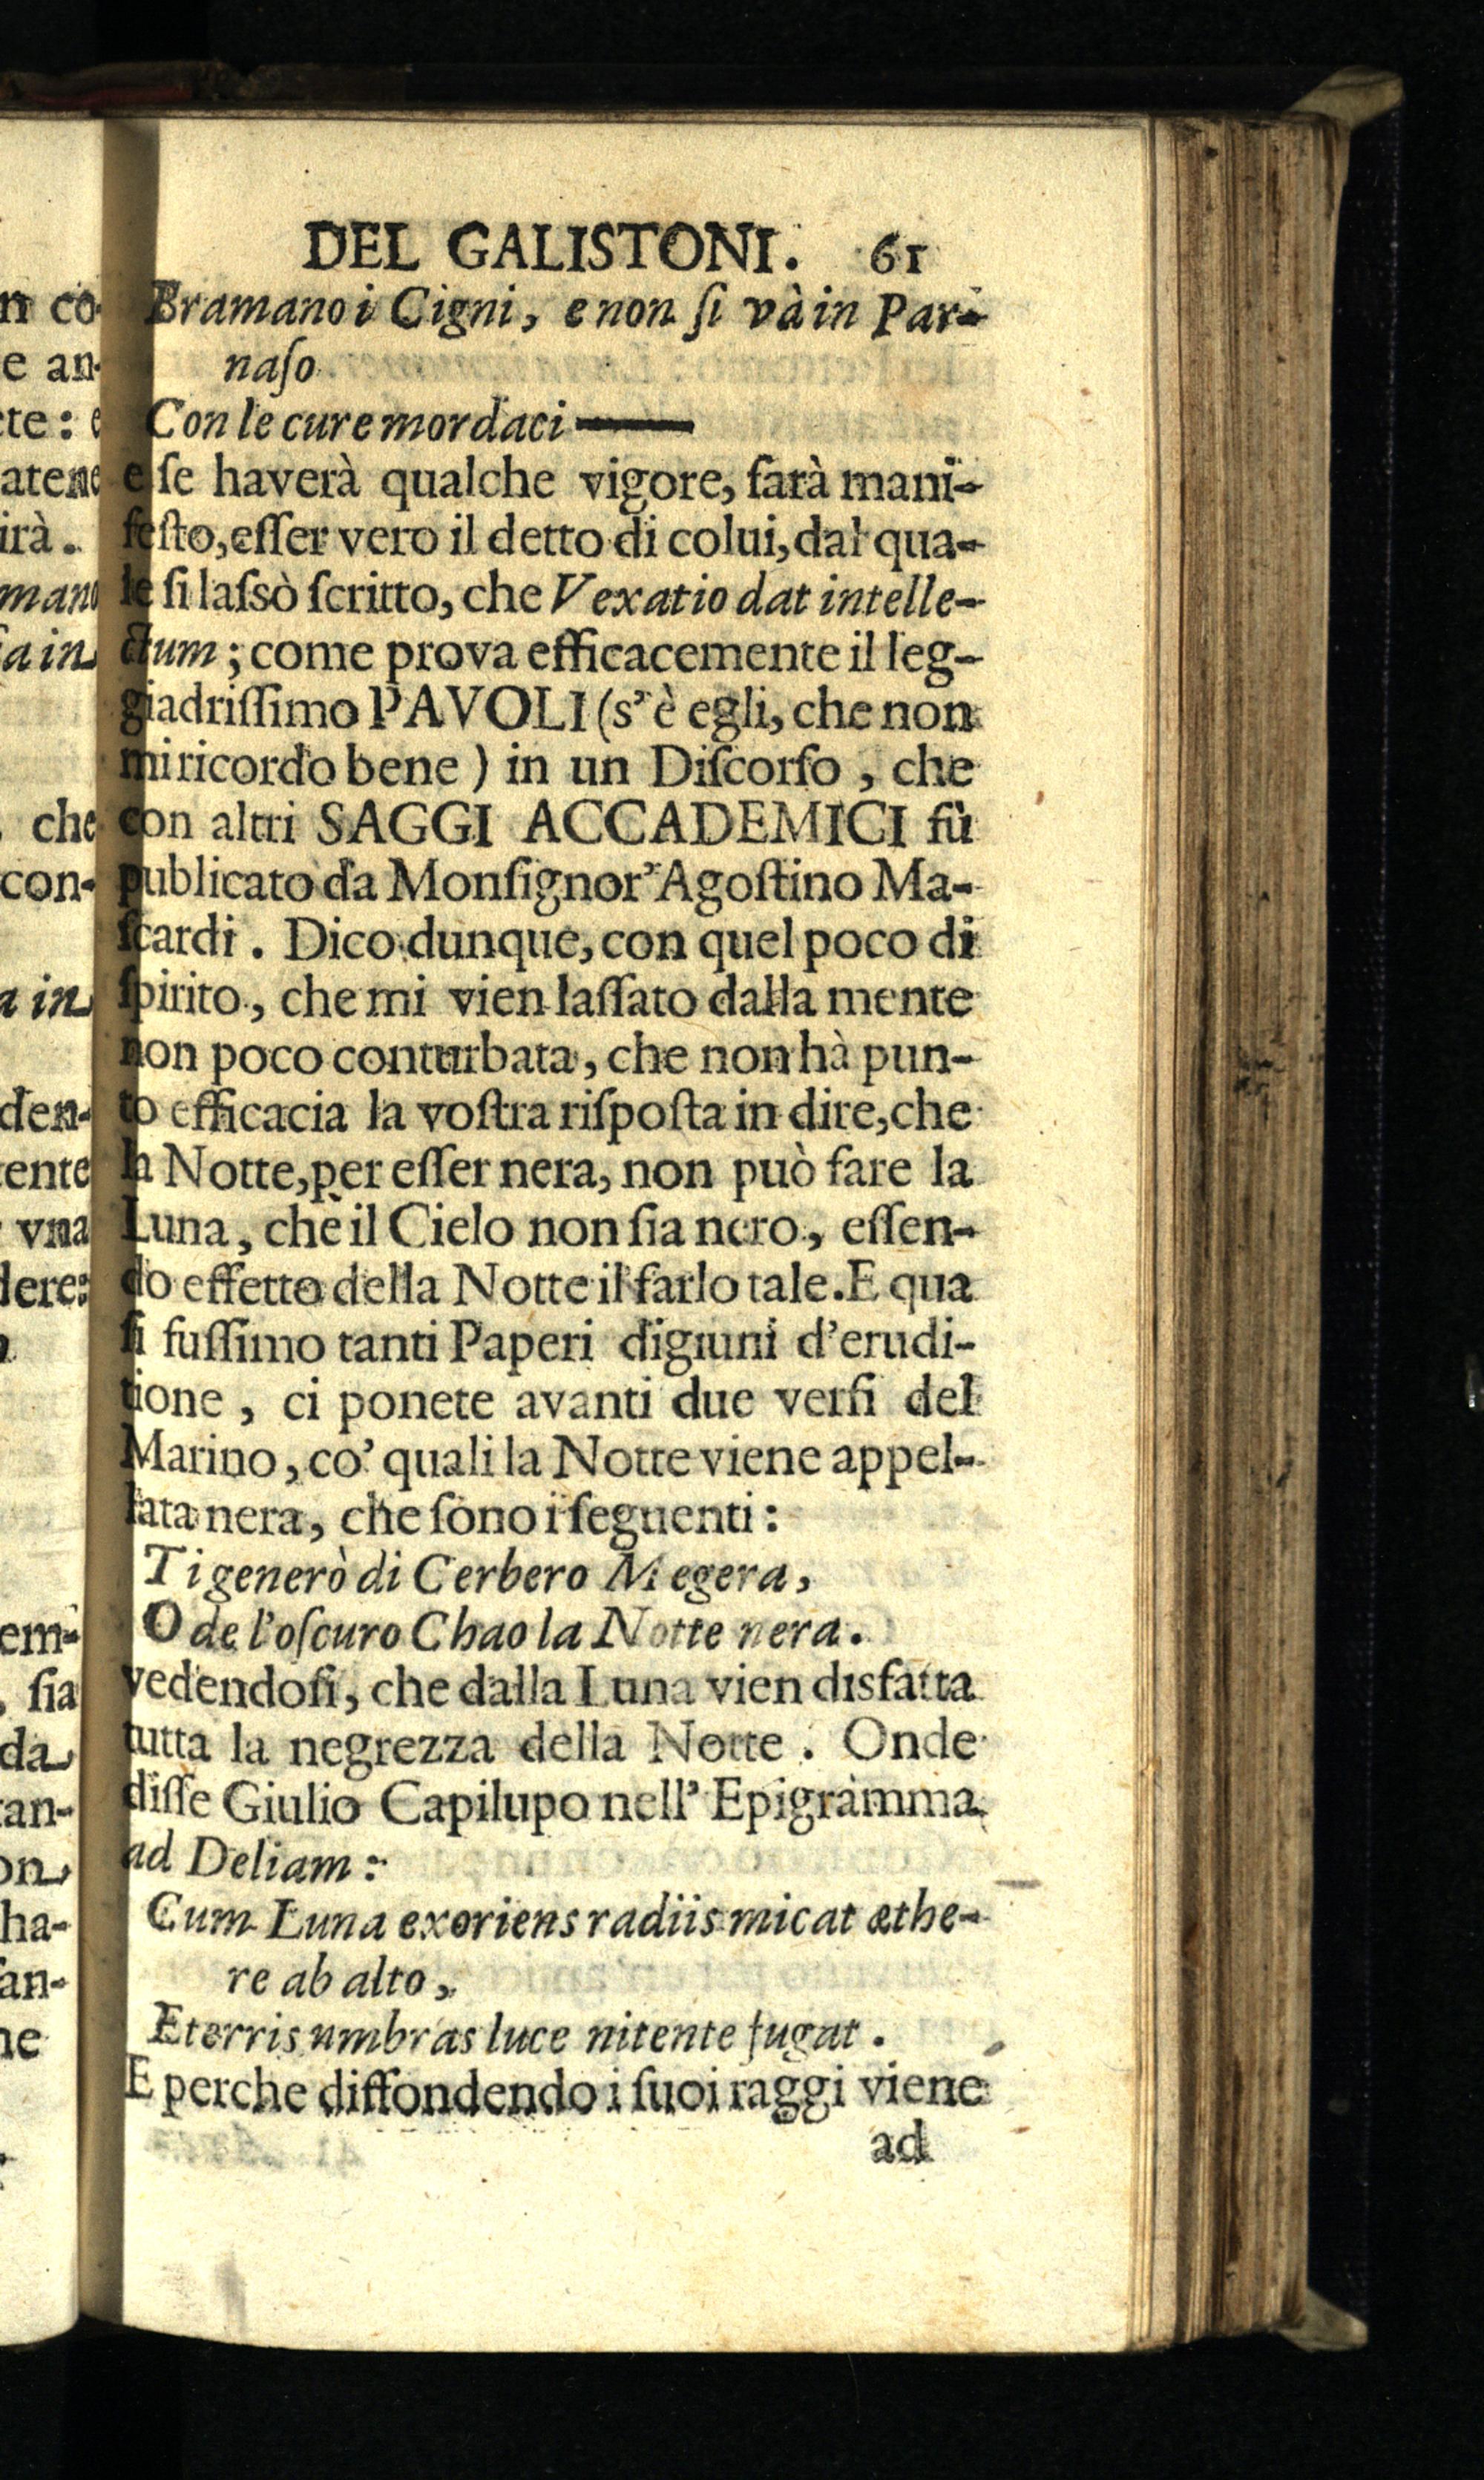 DEL GALISTONI. 61
Bramano i Cigni, e non ſi và in Par-
naſo
Con le cure mordaci ——
e ſe haverà qualche vigore, ſarà mani-
feſto, eſſer vero il detto di colui, dal qua-
le ſi laſsò ſcritto, che Vexatio dat intelle-
ctum; come prova efficacemente il leg-
giadriſſimo PAVOLI (s'è egli, che non
mi ricordo bene) in un Diſcorſo, che
con altri SAGGI ACCADEMICI fù
publicato da Monſignor' Agoſtino Ma-
ſcardi. Dico dunque, con quel poco di
ſpirito, che mi vien laſſato dalla mente
non poco conturbata, che non hà pun-
to efficacia la voſtra riſpoſta in dire, che
la Notte, per eſſer nera, non può fare la
Luna, che il Cielo non ſia nero, eſſen-
do effetto della Notte il farlo tale. E qua
ſi fuſſimo tanti Paperi digiuni d'erudi-
tione, ci ponete avanti due verſi del
Marino, co' quali la Notte viene appel-
lata nera, che ſono i ſeguenti:
Ti generò di Cerbero Megera,
O de l'oſcuro Chao la Notte nera.
vedendoſi, che dalla Luna vien disfatta
tutta la negrezza della Notte. Onde
diſſe Giulio Capilupo nell' Epigramma
ad Deliam:
Cum Luna exoriens radiis micat æthe-
re ab alto,
E terris umbras luce nitente fugat.
E perche diffondendo i ſuoi raggi viene
ad
n co-
e an-
te: e
atene
irà.
mano
a in
che
con-
a in
den-
tente
vna
dere:
em-
, ſia
da
tan-
on
ha-
an-
ne